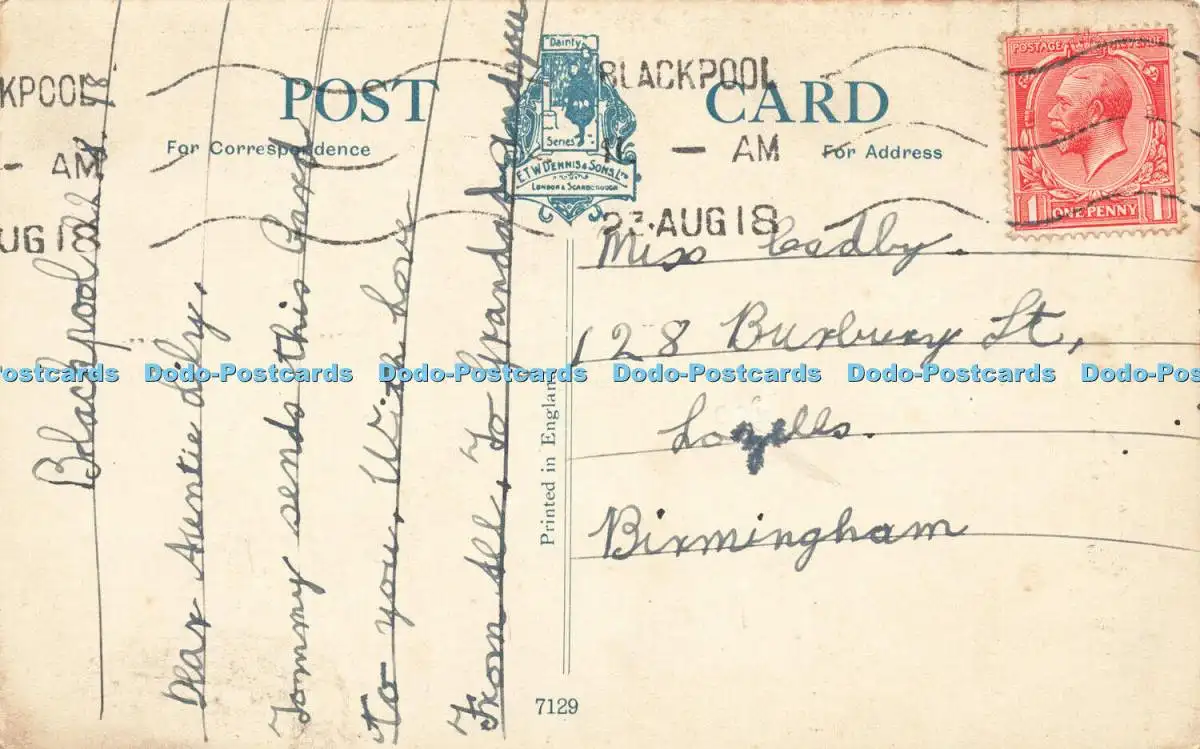 POST CARD
For Correspondence
For Address
Dainty
Series
E.T.W. DENNIS & SONS, LTD
LONDON & SCARBOROUGH
KPOOL
- AM
UG 18
BLACKPOOL
- AM
23 AUG 18
POSTAGE REVENUE
1 ONE PENNY 1
Blackpool 22.8.18.
Dear Auntie Lily,
Tommy sends this Card
To you, With love
From all, To Grandad and you
Miss Cadby.
128 Burbury St,
Lozells.
Birmingham
Printed in England
7129
ostcards Dodo-Postcards Dodo-Postcards Dodo-Postcards Dodo-Postcards Dodo-Pos